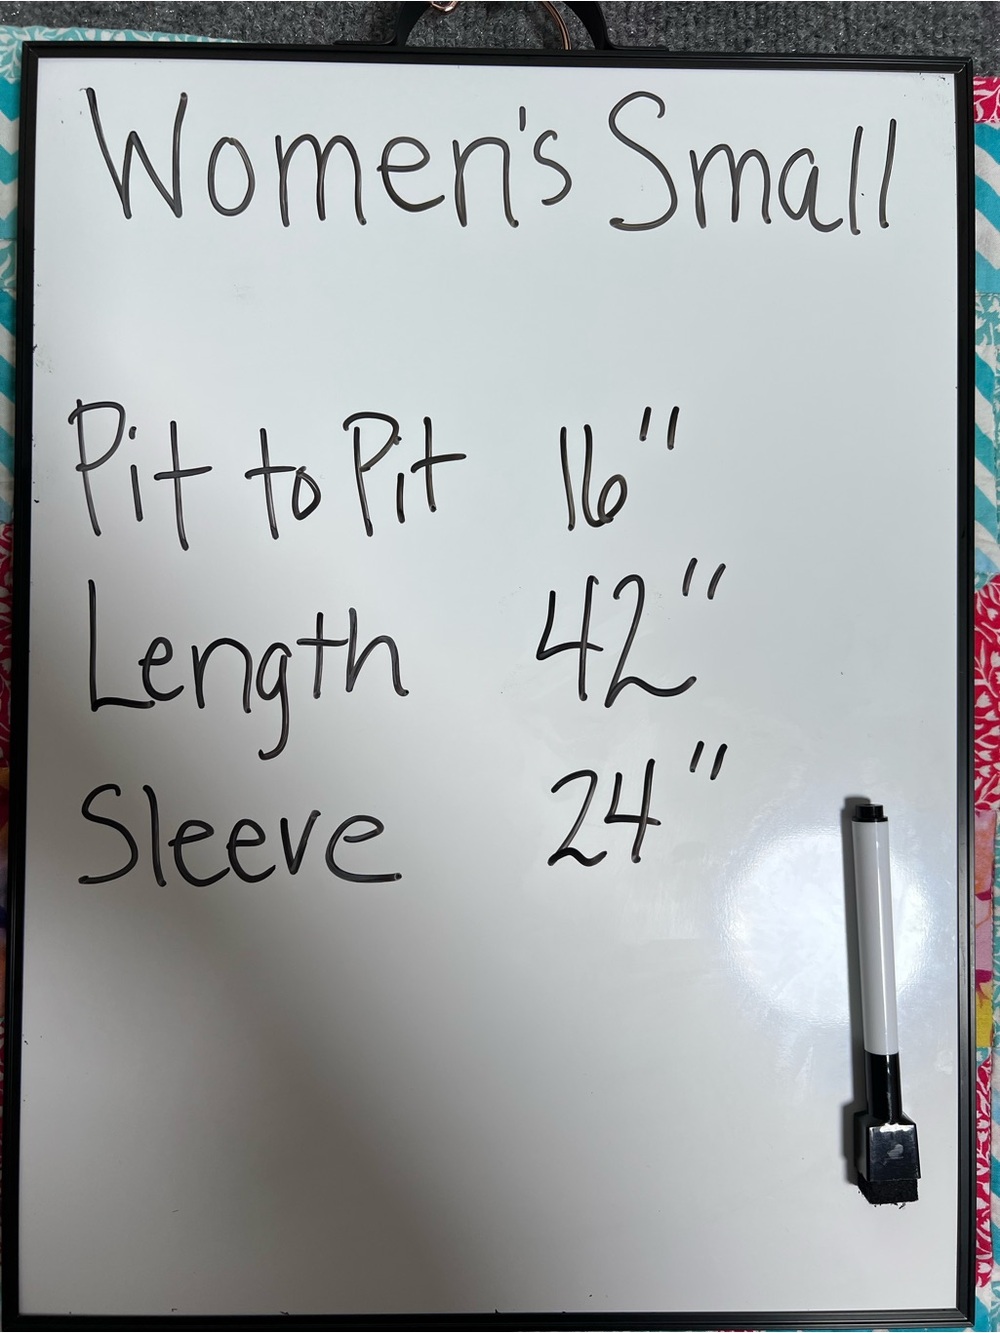 Women's Small
Pit to Pit 16"
Length 42"
Sleeve 24"